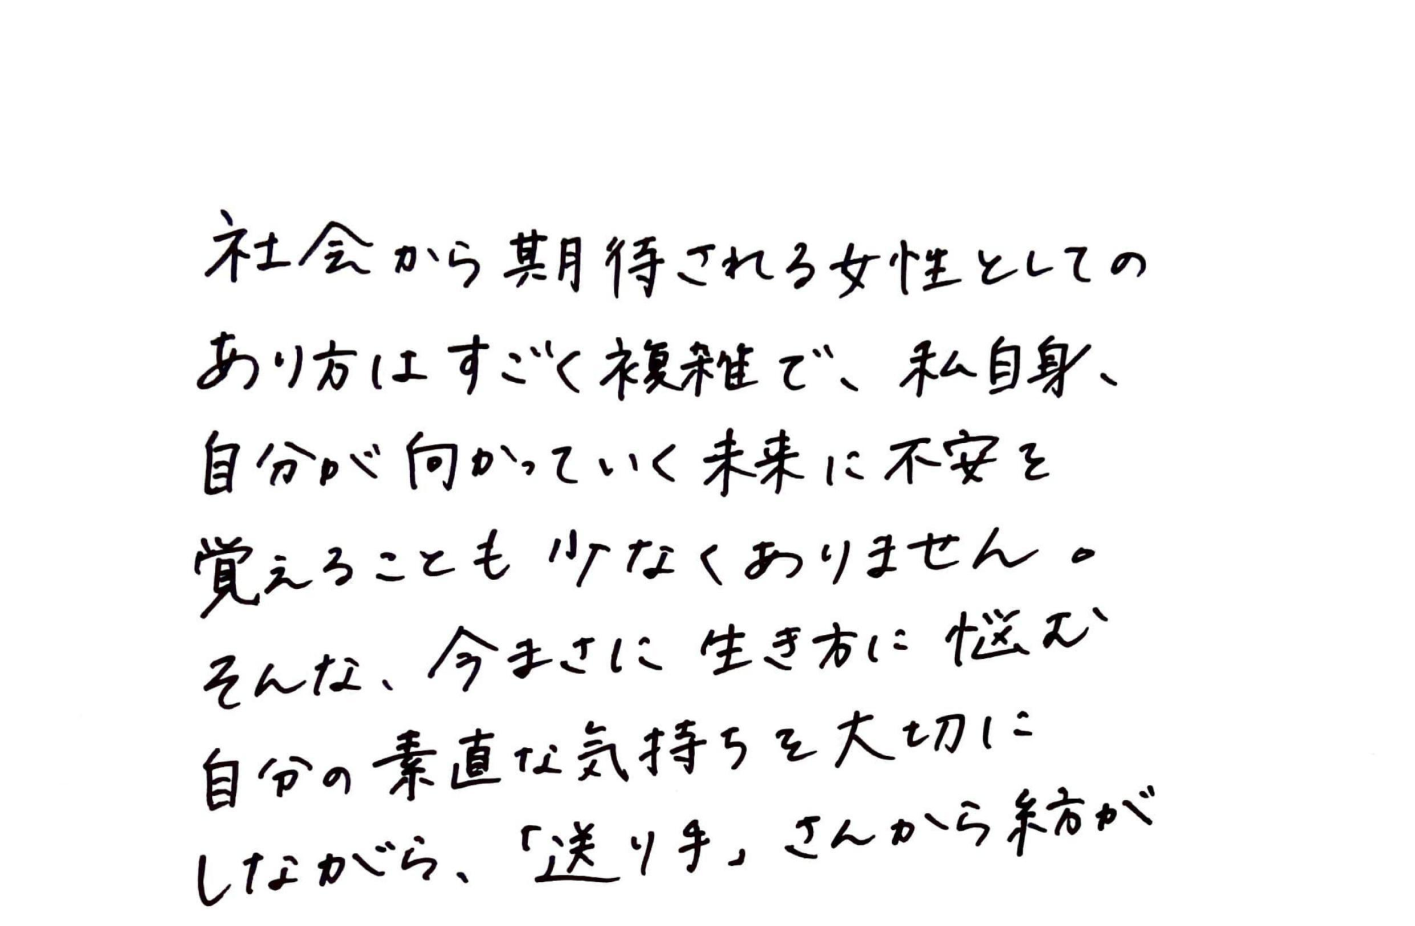 社会から期待される女性としての
あり方はすごく複雑で、私自身、
自分が向かっていく未来に不安を
覚えることも少なくありません。
そんな、今まさに生き方に悩む
自分の素直な気持ちを大切に
しながら、「送り手」さんから紡が